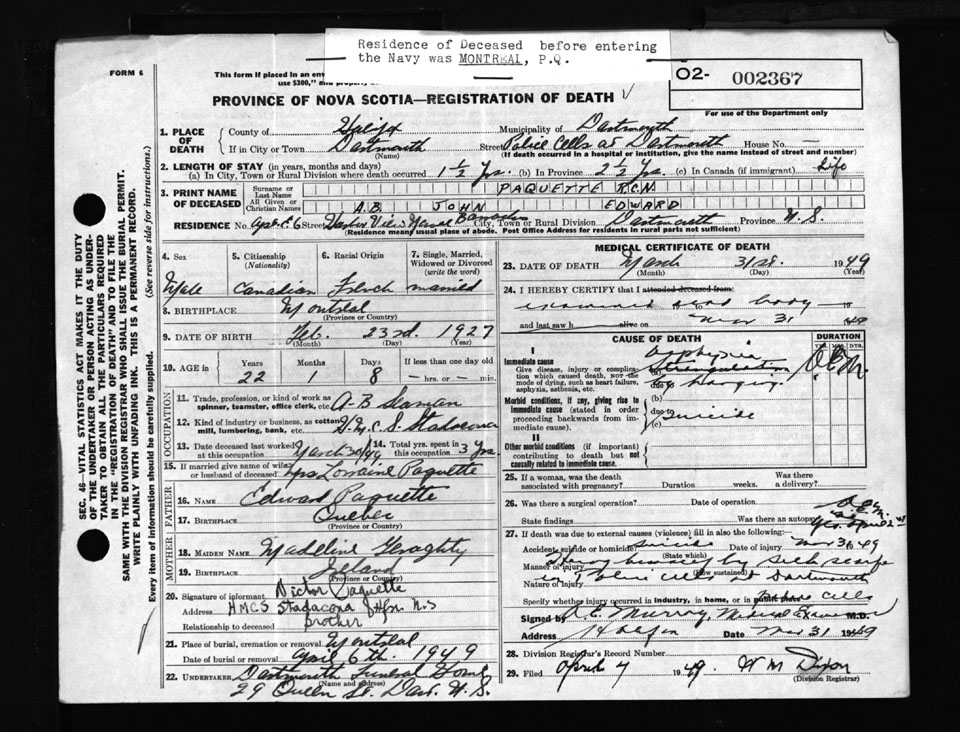 Residence of Deceased before entering
the Navy was MONTREAL, P.Q.
FORM 6
This form if placed in an env
use $300," and
O2- 002367
For use of the Department only
PROVINCE OF NOVA SCOTIA—REGISTRATION OF DEATH
1. PLACE OF DEATH
County of Halifax
Municipality of Dartmouth
If in City or Town Dartmouth
(Name)
Street Police Cells at Dartmouth House No. —
(If death occurred in a hospital or institution, give the name instead of street and number)
2. LENGTH OF STAY (in years, months and days)
(a) In City, Town or Rural Division where death occurred 1 1/2 Yrs. (b) In Province 2 1/2 Y (c) In Canada (if immigrant) Life
3. PRINT NAME OF DECEASED
Surname or Last Name PAQUETTE R.C.N.
All Given or Christian Names A.B. JOHN EDWARD
RESIDENCE No. Apt. 6 Street Harbor View Naval Barracks City, Town or Rural Division Dartmouth Province N.S.
(Residence means usual place of abode. Post Office Address for residents in rural parts not sufficient)
4. Sex
Male
5. Citizenship
(Nationality)
Canadian
6. Racial Origin
French
7. Single, Married,
Widowed or Divorced
(write the word)
married
8. BIRTHPLACE Montreal
(Province or Country)
9. DATE OF BIRTH Feb. 23rd. 1927
(Month) (Day) (Year)
10. AGE in
Years Months Days If less than one day old
22 1 8 — hrs. or — min.
OCCUPATION
11. Trade, profession, or kind of work as
spinner, teamster, office clerk, etc. A-B Seaman
12. Kind of industry or business, as cotton
mill, lumbering, bank, etc. H.M.C.S. Stadacona
13. Date deceased last worked
at this occupation March 30/49
14. Total yrs. spent in
this occupation 3 Yrs
15. If married give name of wife
or husband of deceased Mrs Lorraine Paquette
FATHER
16. NAME Edward Paquette
17. BIRTHPLACE Quebec
(Province or Country)
MOTHER
18. MAIDEN NAME Madeline Geraghty
19. BIRTHPLACE Ireland
(Province or Country)
20. Signature of informant Victor Paquette
Address HMCS Stadacona Hfx. N.S
Relationship to deceased brother
21. Place of burial, cremation or removal Montreal
Date of burial or removal April 6th 1949
22. UNDERTAKER Dartmouth Funeral Home
(Name and address)
29 Queen St. Dart. N.S.
MEDICAL CERTIFICATE OF DEATH
23. DATE OF DEATH March 31st. 1949
(Month) (Day) (Year)
24. I HEREBY CERTIFY that I attended deceased from
examined dead body 19
and last saw h alive on Mar 31 1949
CAUSE OF DEATH
DURATION
YRS. MOS. DYS.
I
Immediate cause
Give disease, injury or complication which caused death, NOT the mode of dying, such as heart failure, asphyxia, asthenia, etc.
Asphyxia
Strangulation
by hanging
Morbid conditions, if any, giving rise to immediate cause (stated in order proceeding backwards from immediate cause).
(b)
due to
(c) suicide
II
Other morbid conditions (if important) contributing to death but not causally related to immediate cause.
25. If a woman, was the death
associated with pregnancy? Duration weeks. Was there
a delivery?
26. Was there a surgical operation? Date of operation
State findings Was there an autopsy?
27. If death was due to external causes (violence) fill in also the following:
Accident, suicide or homicide? suicide Date of injury Mar 31 49
(State which)
Manner of injury Hung himself by silk scarfe
(How sustained)
Nature of injury in Police cells at Dartmouth
Specify whether injury occurred in industry, in home, or in public place Police cells
Signed by Murray, Medical Examiner M.D.
Address Halifax Date Mar 31 1949
28. Division Registrar's Record Number
29. Filed April 4 1949 W M Dixon
(Division Registrar)
SEC. 46—VITAL STATISTICS ACT MAKES IT THE DUTY
OF THE UNDERTAKER OR PERSON ACTING AS UNDERTAKER TO OBTAIN ALL THE PARTICULARS REQUIRED
IN THE "REGISTRATION OF DEATH" AND TO FILE THE
SAME WITH THE DIVISION REGISTRAR WHO SHALL ISSUE THE BURIAL PERMIT.
WRITE PLAINLY WITH UNFADING INK. THIS IS A PERMANENT RECORD.
Every item of information should be carefully supplied. (See reverse side for instructions.)